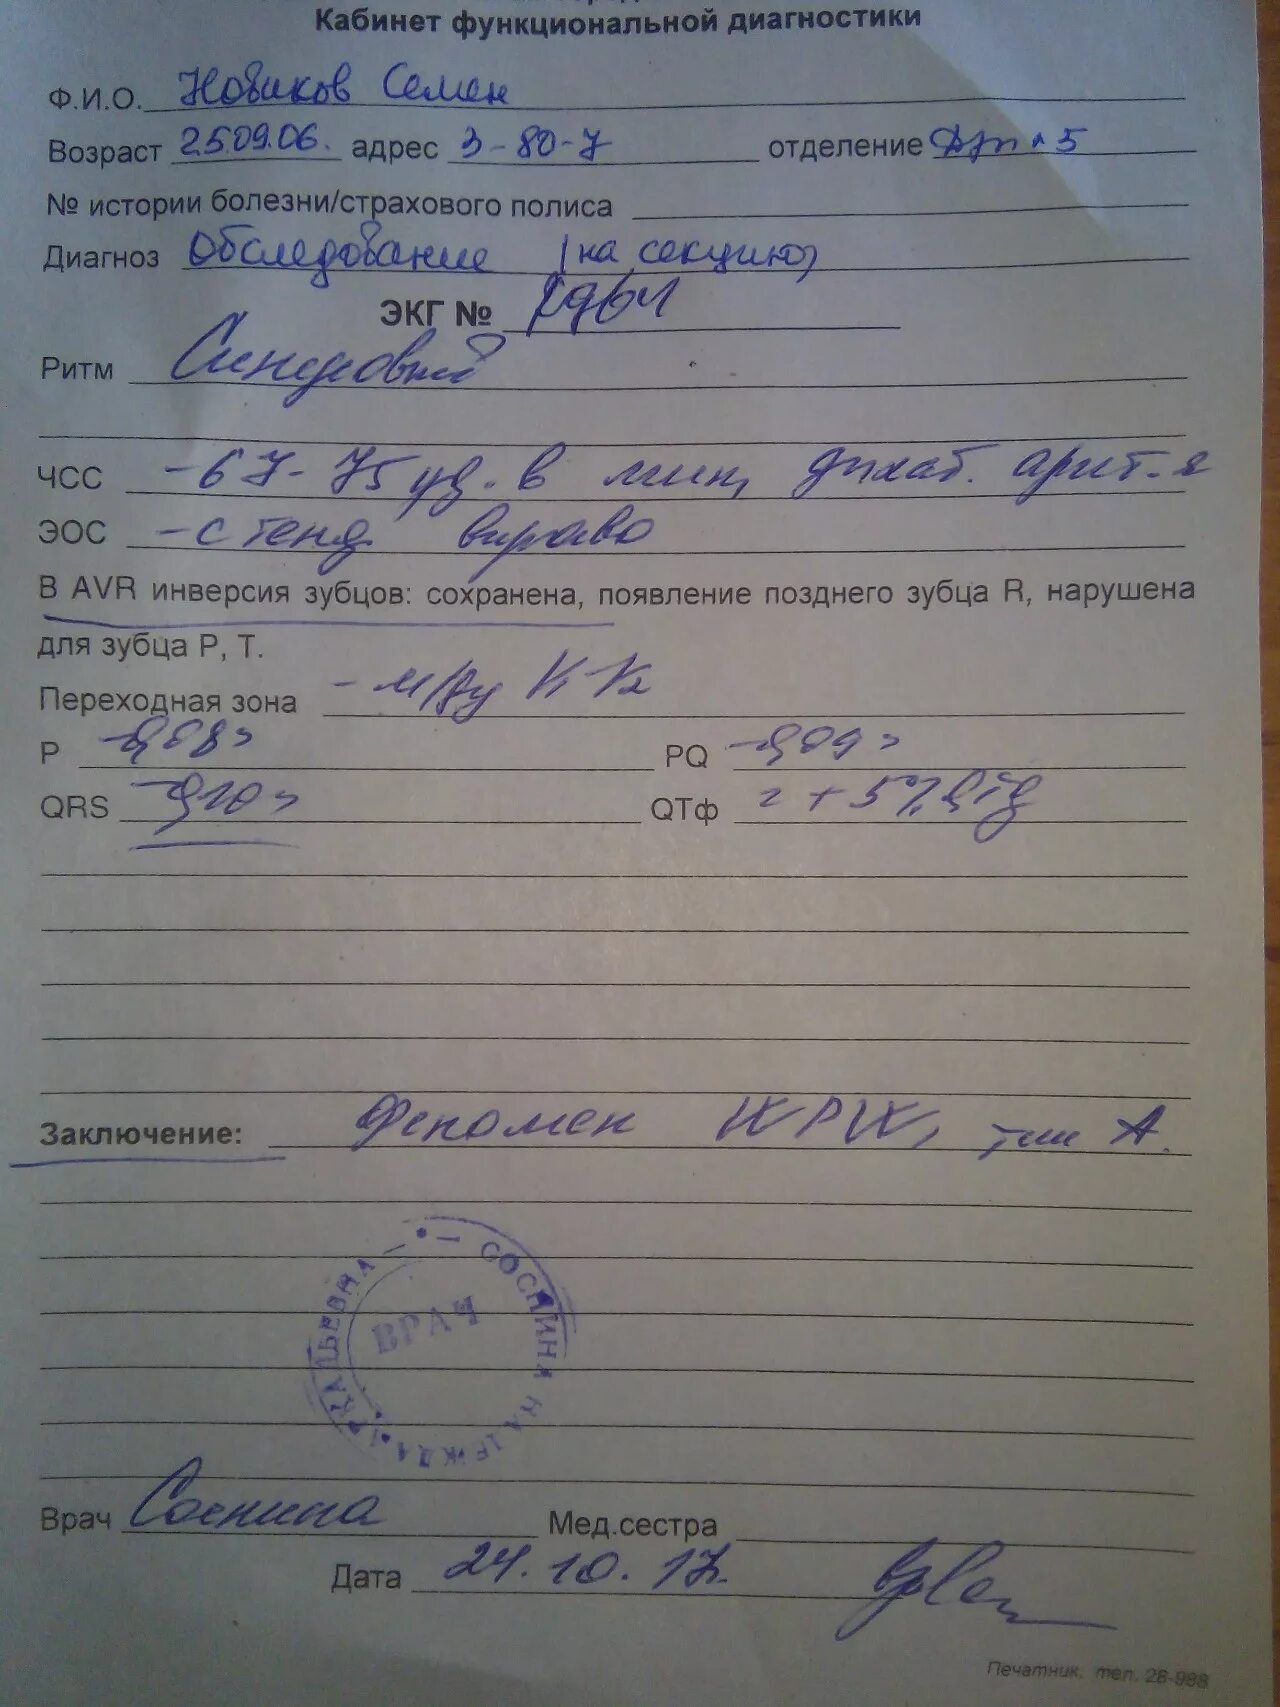 Кабинет функциональной диагностики
Ф.И.О. Новиков Семен
Возраст 25.09.06. адрес 3-80-7 отделение №5
№ истории болезни/страхового полиса
Диагноз Обследование (на секцию)
ЭКГ №
Ритм Синусовый
ЧСС -67-75 уд. в мин, дыхат. арит-я
ЭОС -с тенд вправо
В AVR инверсия зубцов: сохранена, появление позднего зубца R, нарушена
для зубца P, T.
Переходная зона - м/ду V1 V2
P -0,08" PQ -0,09"
QRS -0,10" QTф + 5%
Заключение: Феномен WPW, тип А.
СОСНИНА НАДЕЖДА АРКАДЬЕВНА
ВРАЧ
Врач Соснина Мед.сестра
Дата 24.10.17.
Печатник. тел. 28-988